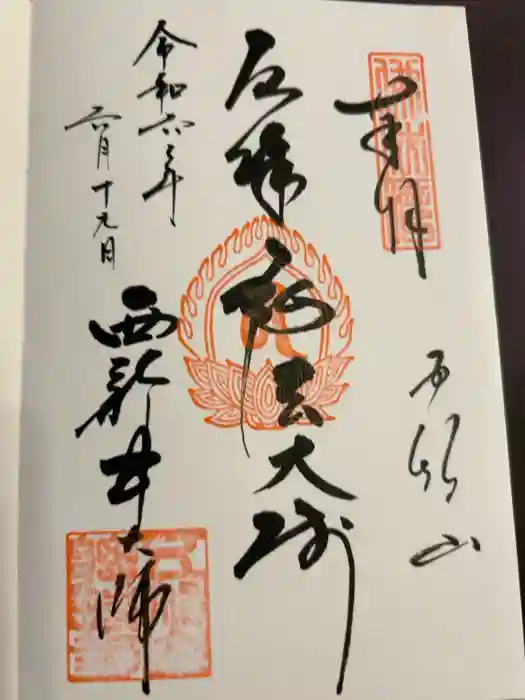 奉拝
五智山
厄除弘法大師
西新井大師
令和六年
六月十九日